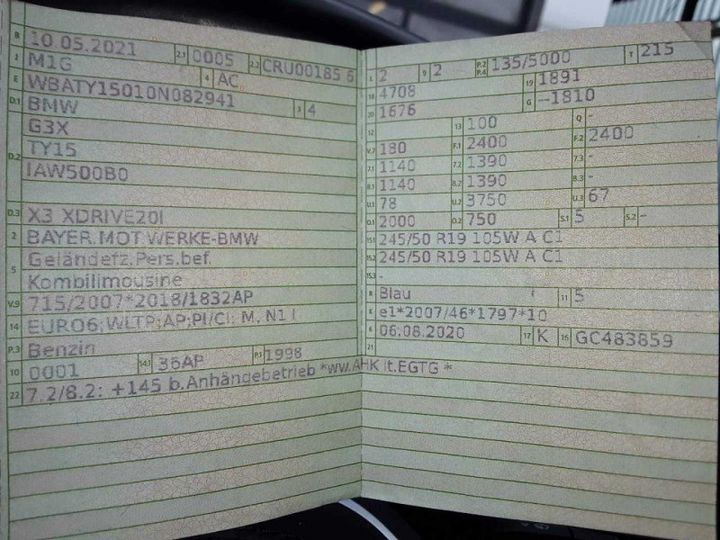 B 10.05.2021 2.1 0005 2.2 CRU00185 6
J M1G 4 AC
E WBATY15010N082941 3 4
D.1 BMW
G3X
D.2 TY15
IAW500B0
D.3 X3 XDRIVE20I
2 BAYER.MOT.WERKE-BMW
5 Geländefz.Pers.bef.
Kombilimousine
V.9 715/2007*2018/1832AP
14 EURO6;WLTP;AP;PI/CI; M, N1 I
P.3 Benzin
10 0001 14.1 36AP P.1 1998
22 7.2/8.2: +145 b.Anhängebetrieb *ww.AHK lt.EGTG *
L 2 9 2 P.2 P.4 135/5000 T 215
18 4708 19 1891
20 1676 G -1810
12 13 100 Q -
V.7 180 F.1 2400 F.2 2400
7.1 1140 7.2 1390 7.3 -
8.1 1140 8.2 1390 8.3 -
U.1 78 U.2 3750 U.3 67
O.1 2000 O.2 750 S.1 5 S.2 -
15.1 245/50 R19 105W A C1
15.2 245/50 R19 105W A C1
15.3 -
R Blau 11 5
K e1*2007/46*1797*10
6 06.08.2020 17 K 16 GC483859
21